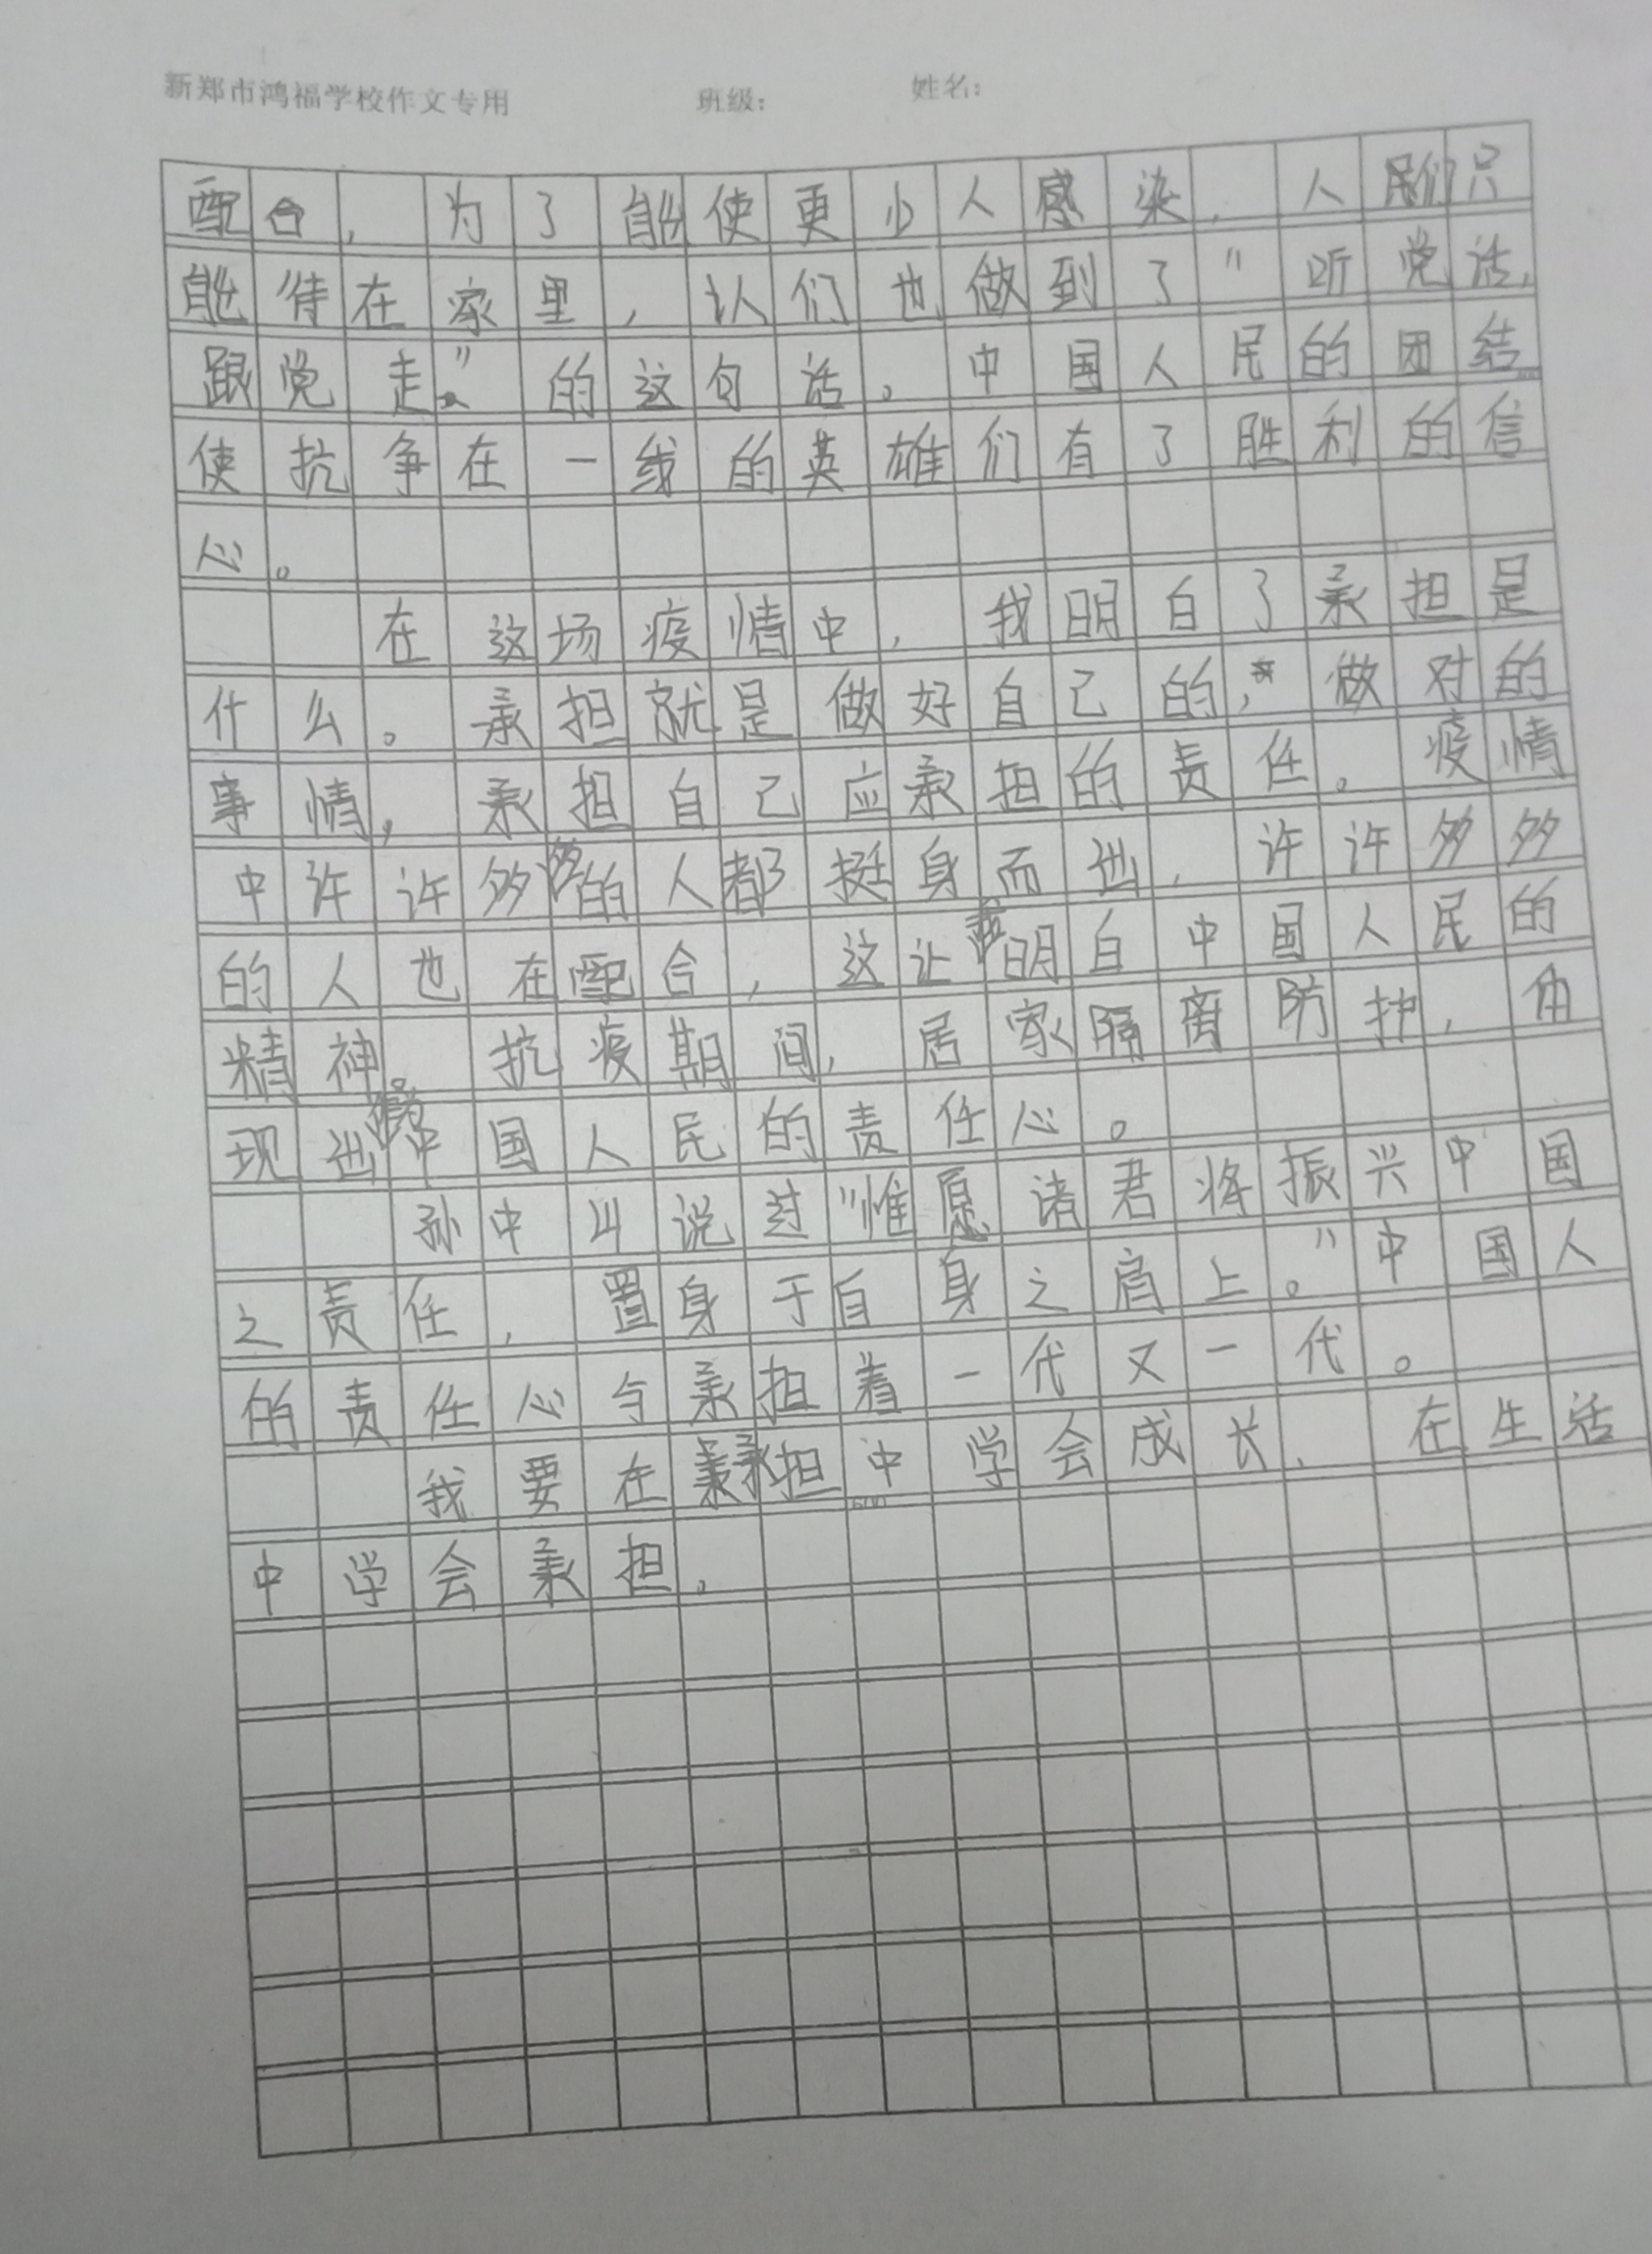 新郑市鸿福学校作文专用 班级： 姓名：
配合，为了能使更少人感染，人民们只
能待在家里，认们也做到了"听党话，
跟党走"。的这句话。中国人民的团结
使抗争在一线的英雄们有了胜利的信
心。
在这场疫情中，我明白了承担是
什么。承担就是做好自己的，做对的
事情，承担自己应承担的责任。疫情
中许许多多的人都挺身而出，许许多多
的人也在配合，这让我明白中国人民的
精神。抗疫期间，居家隔离防护，
现出中国人民的责任心。
孙中山说过"惟愿诸君将振兴中国
之责任，置身于自身之肩上。"中国人
的责任心与承担着一代又一代。
我要在承担中学会成长，在生活
600
中学会承担。